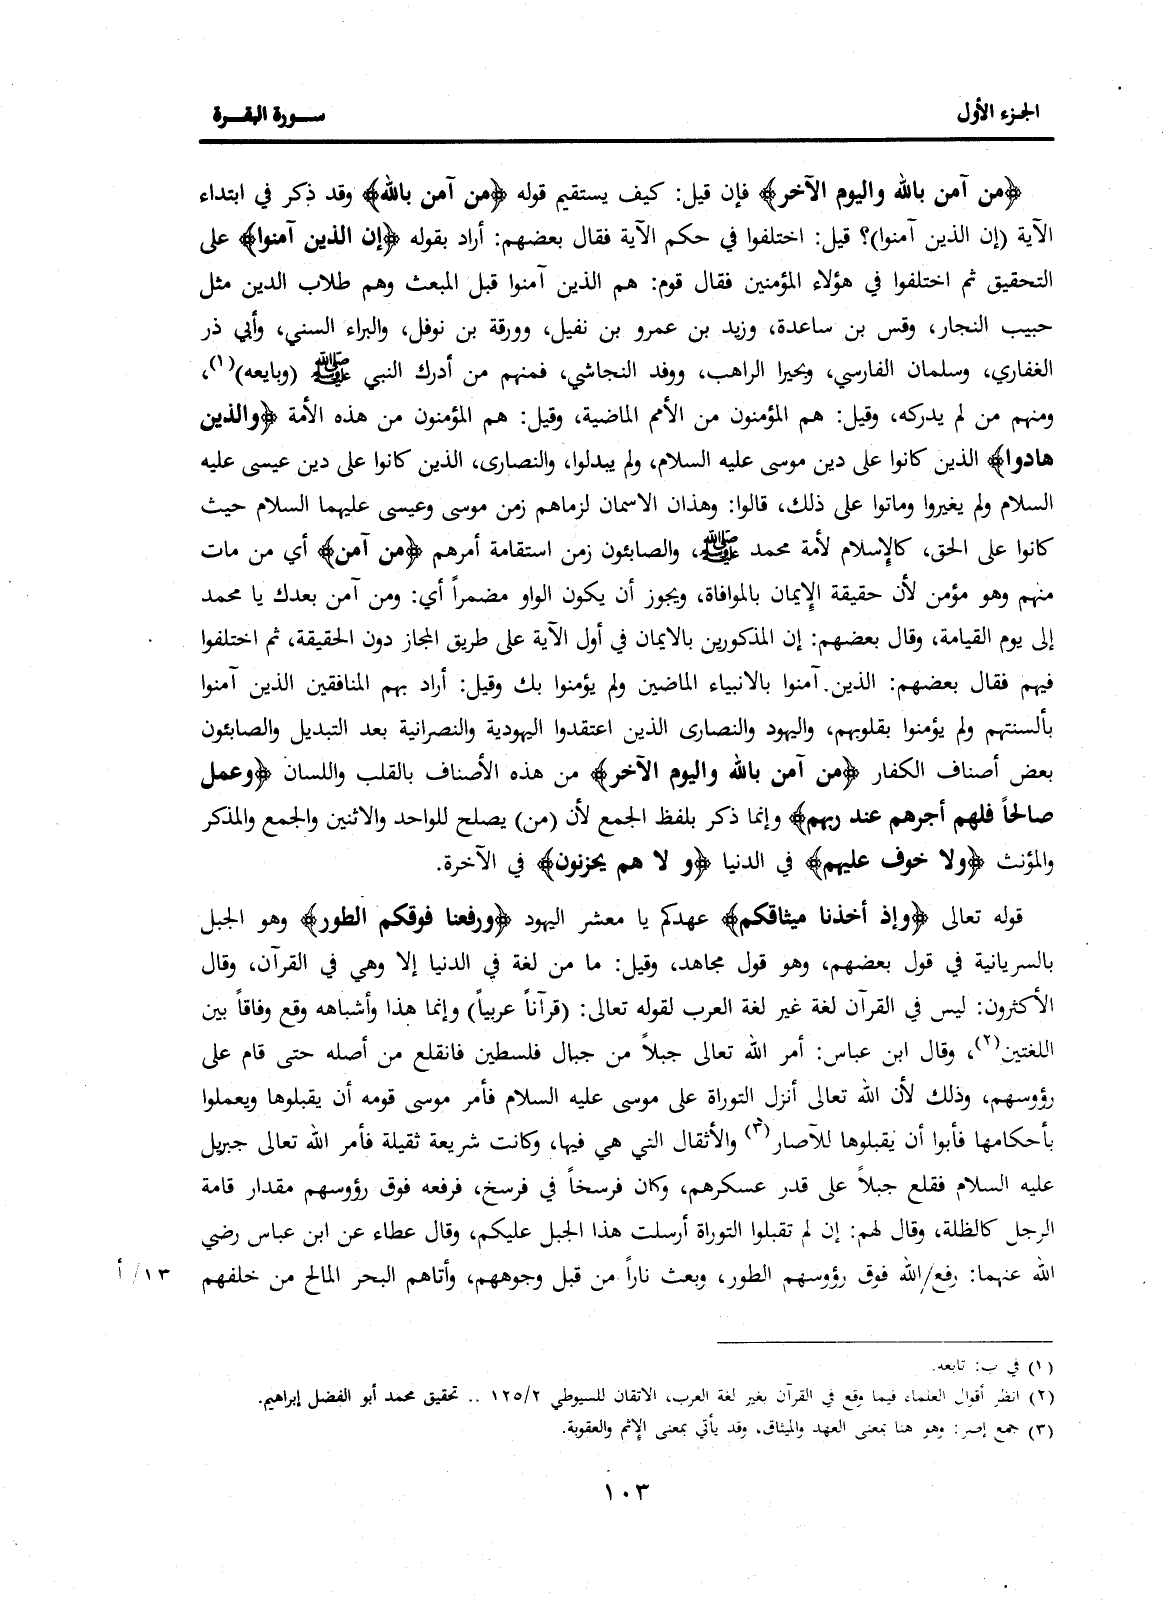 الجزء الأول
سورة البقرة
﴿من آمن بالله واليوم الآخر﴾ فإن قيل: كيف يستقيم قوله ﴿من آمن بالله﴾ وقد ذكر في ابتداء
الآية (إن الذين آمنوا)؟ قيل: اختلفوا في حكم الآية فقال بعضهم: أراد بقوله ﴿إن الذين آمنوا﴾ على
التحقيق ثم اختلفوا في هؤلاء المؤمنين فقال قوم: هم الذين آمنوا قبل المبعث وهم طلاب الدين مثل
حبيب النجار، وقس بن ساعدة، وزيد بن عمرو بن نفيل، وورقة بن نوفل، والبراء السني، وأبي ذر
الغفاري، وسلمان الفارسي، وبحيرا الراهب، ووفد النجاشي، فمنهم من أدرك النبي ﷺ (وبايعه)(١)،
ومنهم من لم يدركه، وقيل: هم المؤمنون من الأمم الماضية، وقيل: هم المؤمنون من هذه الأمة ﴿والذين
هادوا﴾ الذين كانوا على دين موسى عليه السلام، ولم يبدلوا، والنصارى، الذين كانوا على دين عيسى عليه
السلام ولم يغيروا وماتوا على ذلك، قالوا: وهذان الاسمان لزماهم زمن موسى وعيسى عليهما السلام حيث
كانوا على الحق، كالإسلام لأمة محمد ﷺ، والصابئون زمن استقامة أمرهم ﴿من آمن﴾ أي من مات
منهم وهو مؤمن لأن حقيقة الإيمان بالموافاة، ويجوز أن يكون الواو مضمراً أي: ومن آمن بعدك يا محمد
إلى يوم القيامة، وقال بعضهم: إن المذكورين بالايمان في أول الآية على طريق المجاز دون الحقيقة، ثم اختلفوا
فيهم فقال بعضهم: الذين آمنوا بالانبياء الماضين ولم يؤمنوا بك وقيل: أراد بهم المنافقين الذين آمنوا
بألسنتهم ولم يؤمنوا بقلوبهم، واليهود والنصارى الذين اعتقدوا اليهودية والنصرانية بعد التبديل والصابئون
بعض أصناف الكفار ﴿من آمن بالله واليوم الآخر﴾ من هذه الأصناف بالقلب واللسان ﴿وعمل
صالحاً فلهم أجرهم عند ربهم﴾ وإنما ذكر بلفظ الجمع لأن (من) يصلح للواحد والاثنين والجمع والمذكر
والمؤنث ﴿ولا خوف عليهم﴾ في الدنيا ﴿و لا هم يحزنون﴾ في الآخرة.
قوله تعالى ﴿وإذ أخذنا ميثاقكم﴾ عهدكم يا معشر اليهود ﴿ورفعنا فوقكم الطور﴾ وهو الجبل
بالسريانية في قول بعضهم، وهو قول مجاهد، وقيل: ما من لغة في الدنيا إلا وهي في القرآن، وقال
الأكثرون: ليس في القرآن لغة غير لغة العرب لقوله تعالى: (قرآناً عربياً) وإنما هذا وأشباهه وقع وفاقاً بين
اللغتين(٢)، وقال ابن عباس: أمر الله تعالى جبلاً من جبال فلسطين فانقلع من أصله حتى قام على
رؤوسهم، وذلك لأن الله تعالى أنزل التوراة على موسى عليه السلام فأمر موسى قومه أن يقبلوها ويعملوا
بأحكامها فأبوا أن يقبلوها للآصار(٣) والأثقال التي هي فيها، وكانت شريعة ثقيلة فأمر الله تعالى جبريل
عليه السلام فقلع جبلاً على قدر عسكرهم، وكان فرسخاً في فرسخ، فرفعه فوق رؤوسهم مقدار قامة
الرجل كالظلة، وقال لهم: إن لم تقبلوا التوراة أرسلت هذا الجبل عليكم، وقال عطاء عن ابن عباس رضي
الله عنهما: رفع/الله فوق رؤوسهم الطور، وبعث ناراً من قبل وجوههم، وأتاهم البحر المالح من خلفهم
١٣/أ
(١) في ب: تابعه.
(٢) انظر أقوال العلماء فيما وقع في القرآن بغير لغة العرب، الاتقان للسيوطي ١٢٥/٢ .. تحقيق محمد أبو الفضل إبراهيم.
(٣) جمع إصر: وهو هنا بمعنى العهد والميثاق، وقد يأتي بمعنى الإثم والعقوبة.
١٠٣